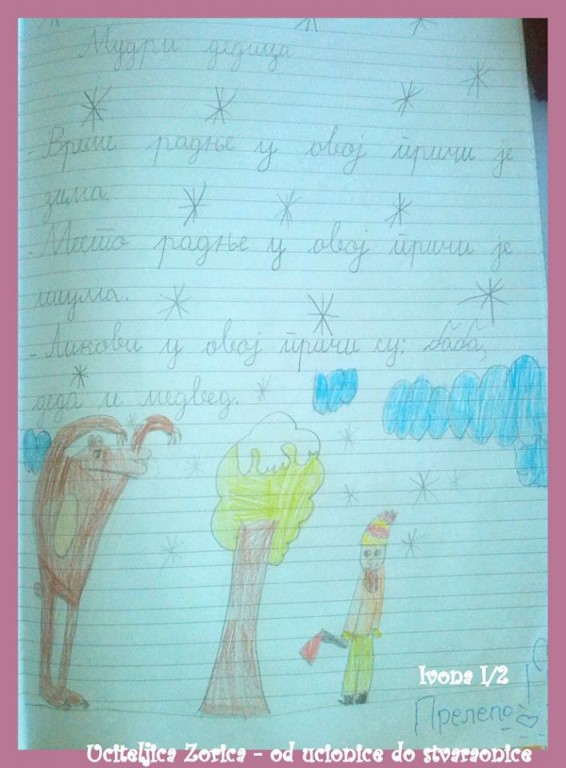 Мудри дедица
- Време радње у овој причи је
зима.
- Место радње у овој причи је
шума.
- Ликови у овој причи су: баба,
деда и медвед.
Ivona I/2
Прелепо!
Uciteljica Zorica - od ucionice do stvaraonice